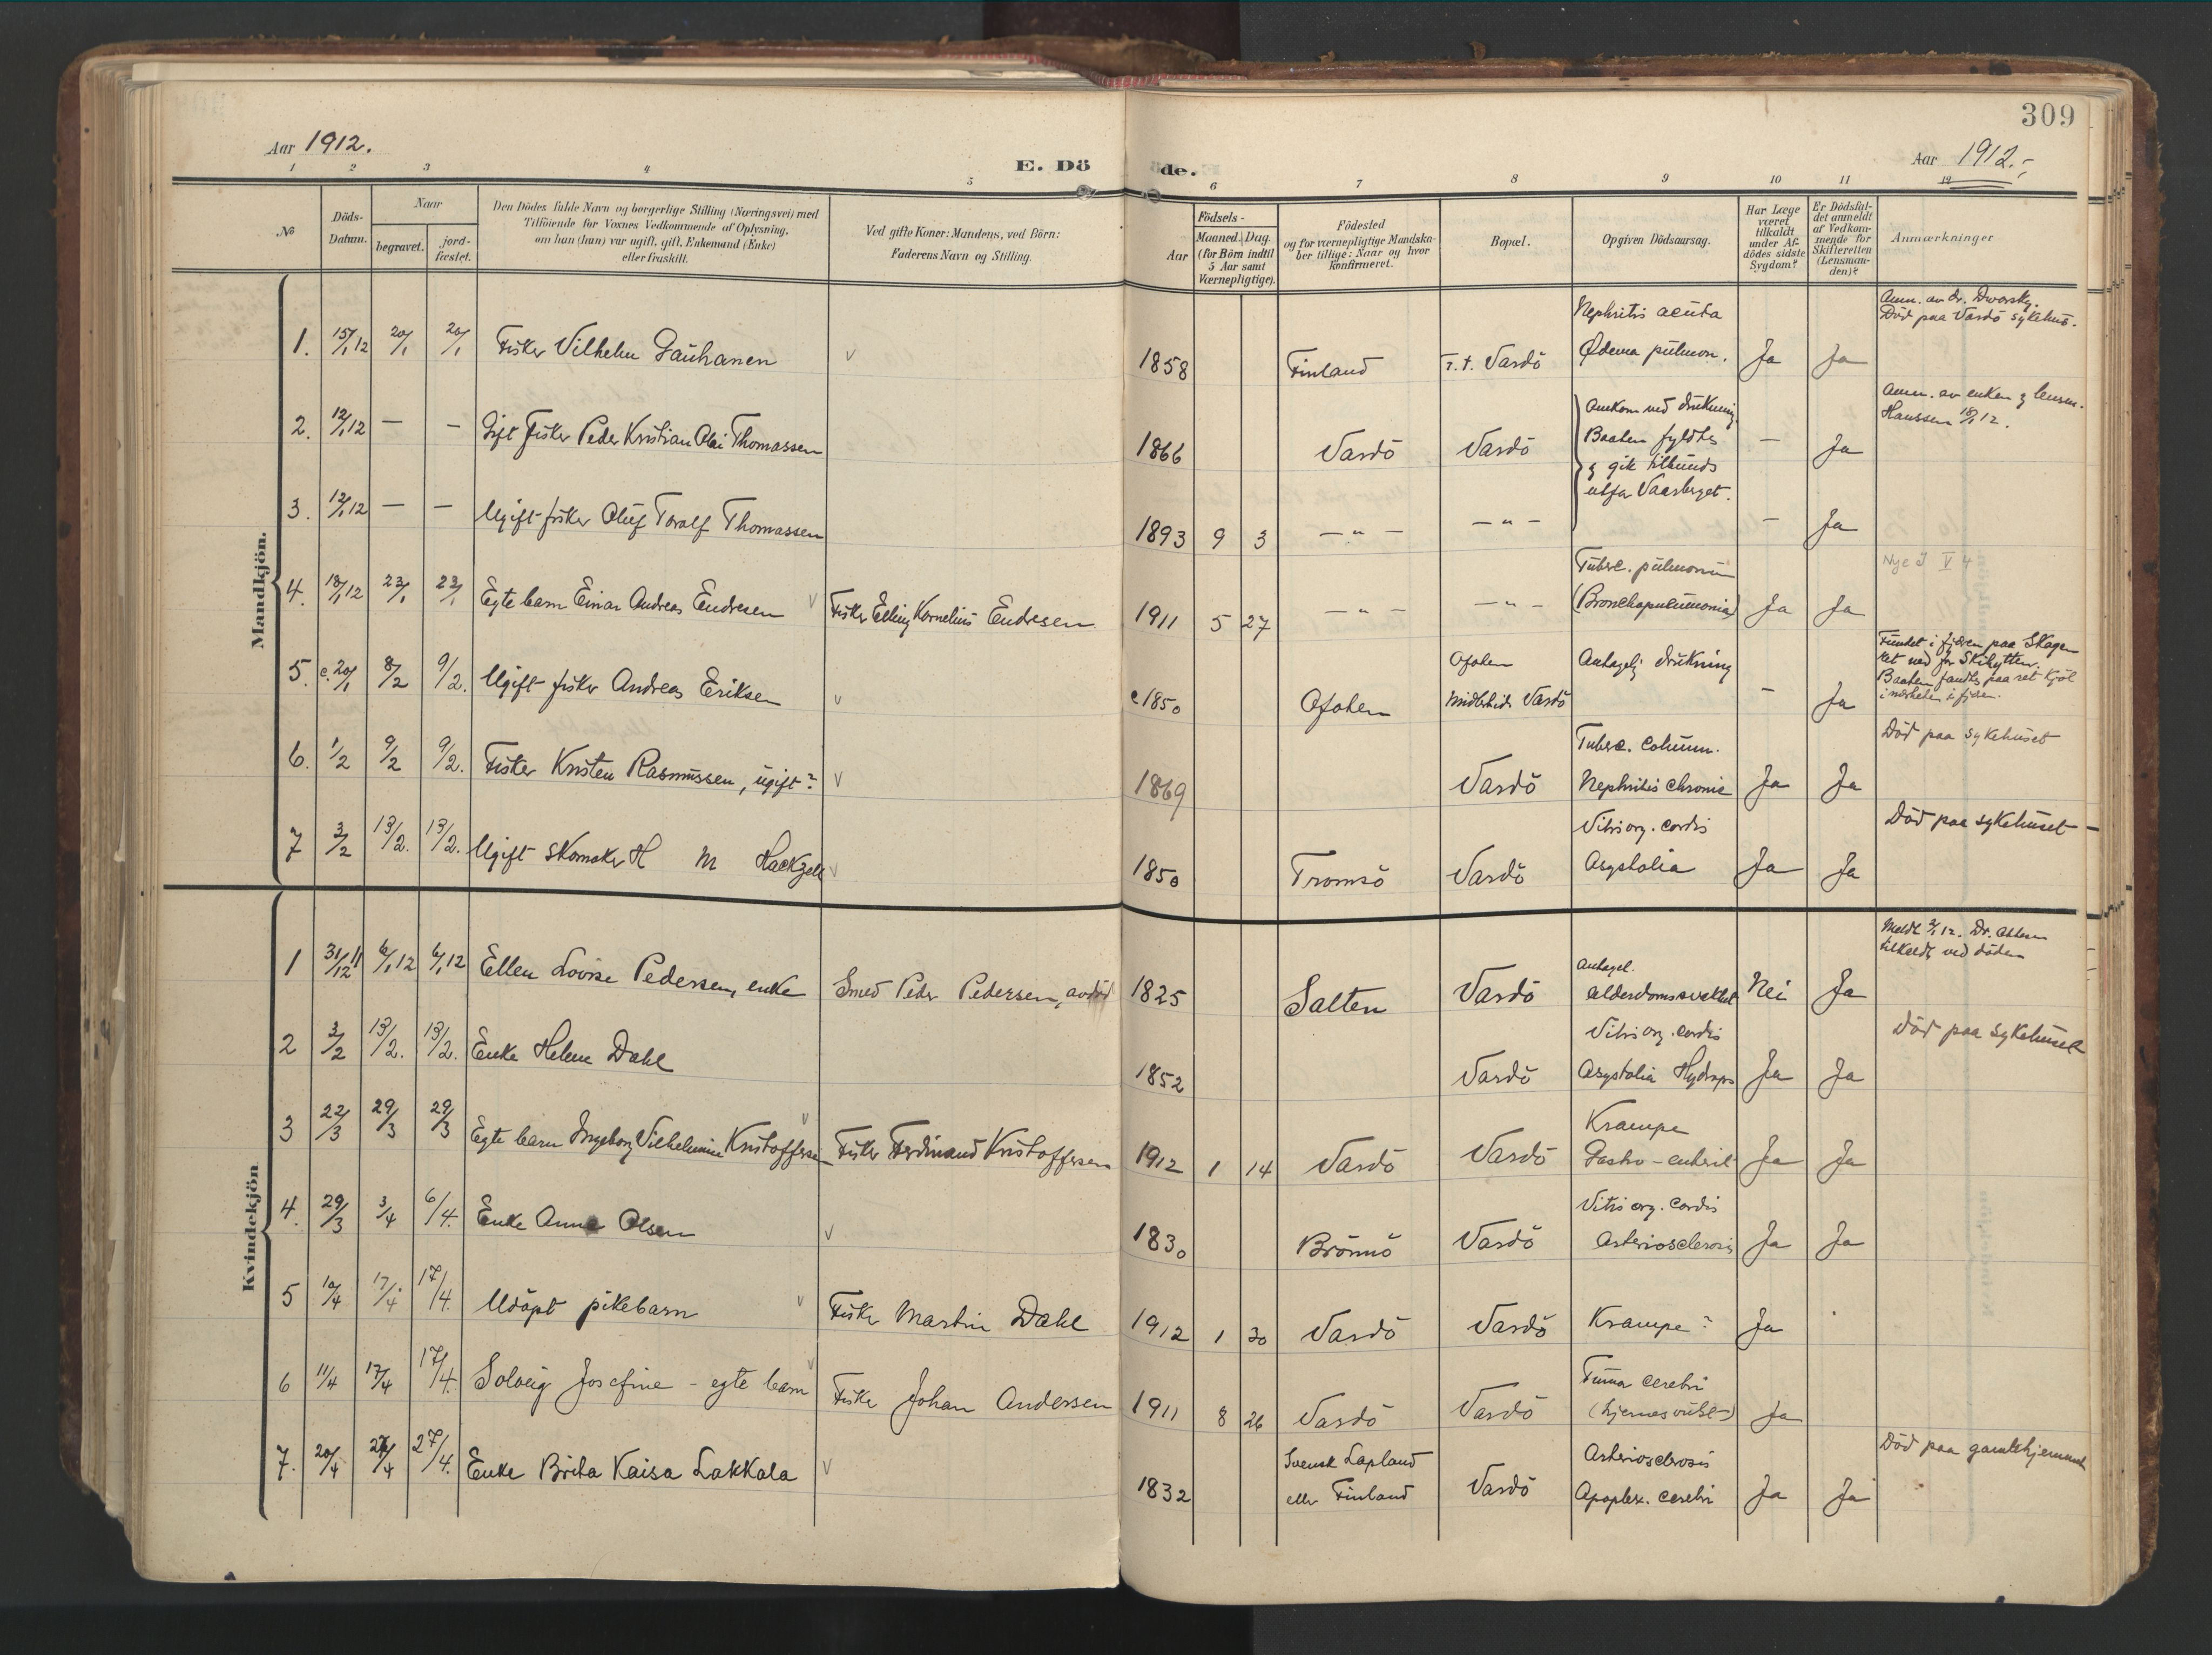 309
Aar 1912.
E. Dö
de.
Aar 1912.-
1 2 3 4 5 6 7 8 9 10 11 12
No
Döds-
Datum.
Naar
begravet.
jord-
fæstet.
Den Dödes fulde Navn og borgerlige Stilling (Næringsvei) med
Tilföiende for Voxnes Vedkommende af Oplysning,
om han (hun) var ugift, gift, Enkemand (Enke)
eller fraskilt.
Ved gifte Koner: Mandens, ved Börn:
Faderens Navn og Stilling.
Födsels-
Aar
Maaned. Dag.
(for Börn indtil
5 Aar samt
Værnepligtige).
Födested
og for værnepligtige Mandska-
ber tillige: Naar og hvor
konfirmeret.
Bopæl.
Opgiven Dödsaarsag.
Har Læge
været
tilkaldt
under Af-
dödes sidste
Sygdom?
Er Dödsfal-
det anmeldt
af Vedkom-
mende for
Skifteretten
(Lensman-
den)?
Anmærkninger
Mandkjön.
1. 15/1 12 20/1 20/1 Fisker Vilhelm Gauhanen v 1858 Finland F. t. Vardö Nephritis acuta
Ødema pulmon. Ja Ja Anm. av dr. Dworsky.
Död paa Vardö sykehus.
2. 12/1 12 — — Gift fisker Peder Kristian Olai Thomassen 1866 Vardö Vardö Omkom ved drukning.
Baaten fyldtes
& gik tilbunds
utfor Vaarberget. — Ja Anm. av enken & lensm.
Hanssen 18/1 12.
3. 12/1 12 — — Ugift fisker Oluf Toralf Thomassen 1893 9 3 — " — — " — — Ja
4. 18/1 12 23/1 23/1 Egte barn Einar Andreas Endresen v Fisker Elling Kornelius Endresen 1911 5 27 — " — — " — Tuberc. pulmonum
(Bronchopneumonia) Ja Ja Nye J V 4
5. c. 20/1 8/2 9/2. Ugift fisker Andreas Eriksen v c 1850 Ofoten Ofoten
midlertidig Vardö Antagelig drukning — Ja Fundet i fjæren paa Skagen
ret ned for Skihytten.
Baaten fandtes paa ret kjöl
i nærheten i fjæren.
6. 1/2 9/2 9/2. Fisker Kristen Rasmussen, ugift? v 1869 Vardö Tuberc. column.
Nephritis chronic Ja Ja Död paa sykehuset
7 3/2 13/2. 13/2. Ugift skomaker H M Hackzell v 1850 Tromsö Vardö Viti org. cordis
Asystolia Ja Ja Död paa sykehuset —
Kvindekjön
1 31/12 11 6/1 12 6/1 12 Ellen Lovise Pedersen, enke Smed Peder Pedersen, avdöd 1825 Salten Vardö Antagel.
alderdomssvakhet Nei Ja Meldt 2/1 12. Dr.
tilkaldt ved döden
2 3/2 13/2. 13/2. Enke Helene Dahl 1852 Vardö Viti org. cordis
Asystolia Hydrops Ja Ja Död paa sykehuset
3 22/3 29/3 29/3 Egte barn Ingeborg Vilhelmine Kristoffersen v Fisker Ferdinand Kristoffersen 1912 1 14 Vardö Vardö Krampe
Gastro-enterit Ja Ja
4. 29/3 3/4 6/4. Enke Anne Olsen v 1830 Brönnö Vardö Viti org. cordis
Arteriosclerosis Ja Ja
5 10/4 17/4 17/4. Udöpt pikebarn v Fisker Martin Dahl 1912 1 30 Vardö Vardö Krampe? Ja
6 11/4 17/4 17/4. Solveig Josefine - egte barn v Fisker Johan Andersen 1911 8 26 Vardö Vardö cerebri
(hjernesvulst) Ja
7. 20/4 27/4 27/4. Enke Brita Kaisa Lakkala v 1832 Svensk Lapland
eller Finland Vardö Arteriosclerosis
Apoplex. cerebri Ja Ja Död paa gamlehjemmet